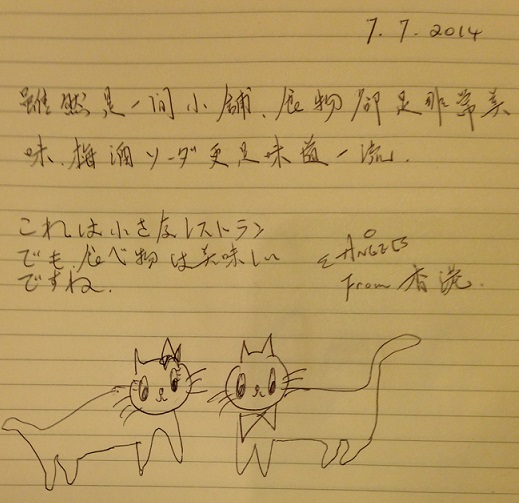 7.7.2014
雖然是一間小舖、食物卻是非常美
味、梅酒ソーダ更是味道一流.
これは小さなレストラン
でも、食べ物は美味しい
ですね.
From 香港.